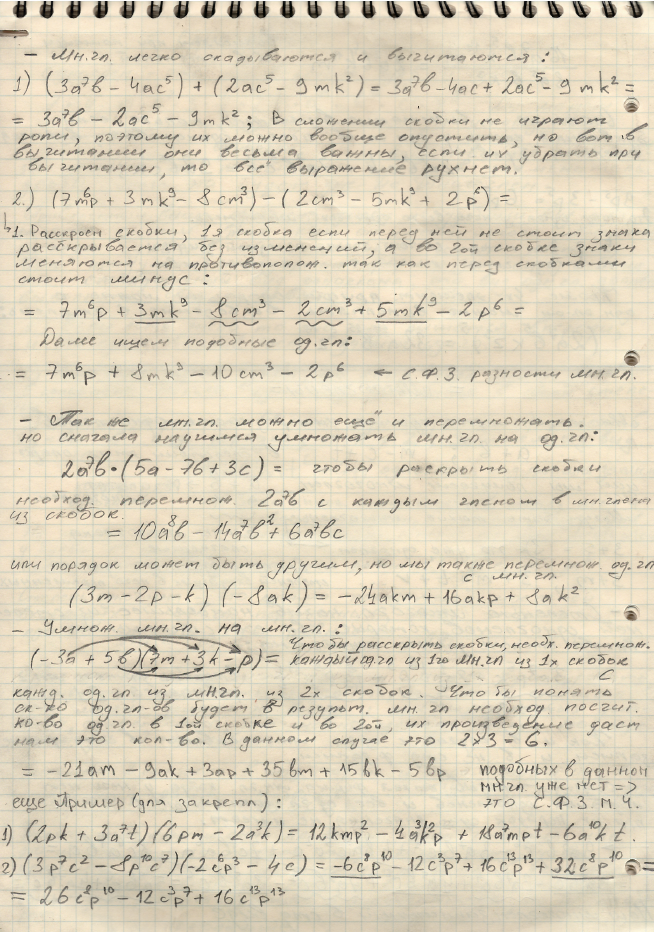 – Мн.чл. легко складываются и вычитаются:
1) (3a⁷b – 4ac⁵) + (2ac⁵ – 9mk²) = 3a⁷b – 4ac + 2ac⁵ – 9mk² =
= 3a⁷b – 2ac⁵ – 9mk²; В сложении скобки не играют
роли, поэтому их можно вообще опустить, но вот в
вычитании они весьма важны, если их убрать при
вычитании, то всё выражение рухнет.
2.) (7m⁶p + 3mk⁹ – 8cm³) – (2cm³ – 5mk⁹ + 2p⁶) =
1. Расскроем скобки, 1я скобка если перед ней не стоит знака
расскрывается без изменений, а во 2ой скобке знаки
меняются на противополож. так как перед скобками
стоит минус:
= 7m⁶p + 3mk⁹ – 8cm³ – 2cm³ + 5mk⁹ – 2p⁶ =
Далее ищем подобные од.чл:
= 7m⁶p + 8mk⁹ – 10cm³ – 2p⁶ ← С.Ф.З. разности мн.чл.
– Так же мн.чл. можно ещё и перемножать.
но сначала научимся умножать мн.чл. на од.чл:
2a⁷b·(5a – 7b + 3c) = чтобы раскрыть скобки
необход. перемнож. 2a⁷b с каждым членом в мн.члена
из скобок.
= 10a⁸b – 14a⁷b² + 6a⁷bc
или порядок может быть другим, но мы также перемнож. од.чл
с мн.чл.
(3m – 2p – k) (–8ak) = –24akm + 16akp + 8ak²
– Умнож. мн.чл. на мн.чл.:
(–3a + 5b)(7m + 3k – p) = Чтобы расскрыть скобки, необх. перемнож.
каждый од.чл из 1го мн.чл из 1х скобок
с
кажд. од.чл из мн.чл. из 2х скобок. Чтобы понять
ск-ко од.чл-ов будет в результ. мн.чл необход посчит.
ко-во од.чл. в 1ой скобке и во 2ой, их произведение даст
нам это кол-во. В данном случае это 2×3 = 6.
= –21am – 9ak + 3ap + 35bm + 15bk – 5bp подобных в данном
мн.чл уже нет =>
это С.Ф.З. М.Ч.
еще Пример (для закрепл):
1) (2pk + 3a⁷t)(6pm – 2a³k) = 12kmp² – 4a³k²p + 18a⁷mpt – 6a¹⁰kt.
2) (3p⁷c² – 8p¹⁰c⁷)(–2c⁶p³ – 4c) = –6c⁸p¹⁰ – 12c³p⁷ + 16c¹³p¹³ + 32c⁸p¹⁰ =
= 26c⁸p¹⁰ – 12c³p⁷ + 16c¹³p¹³